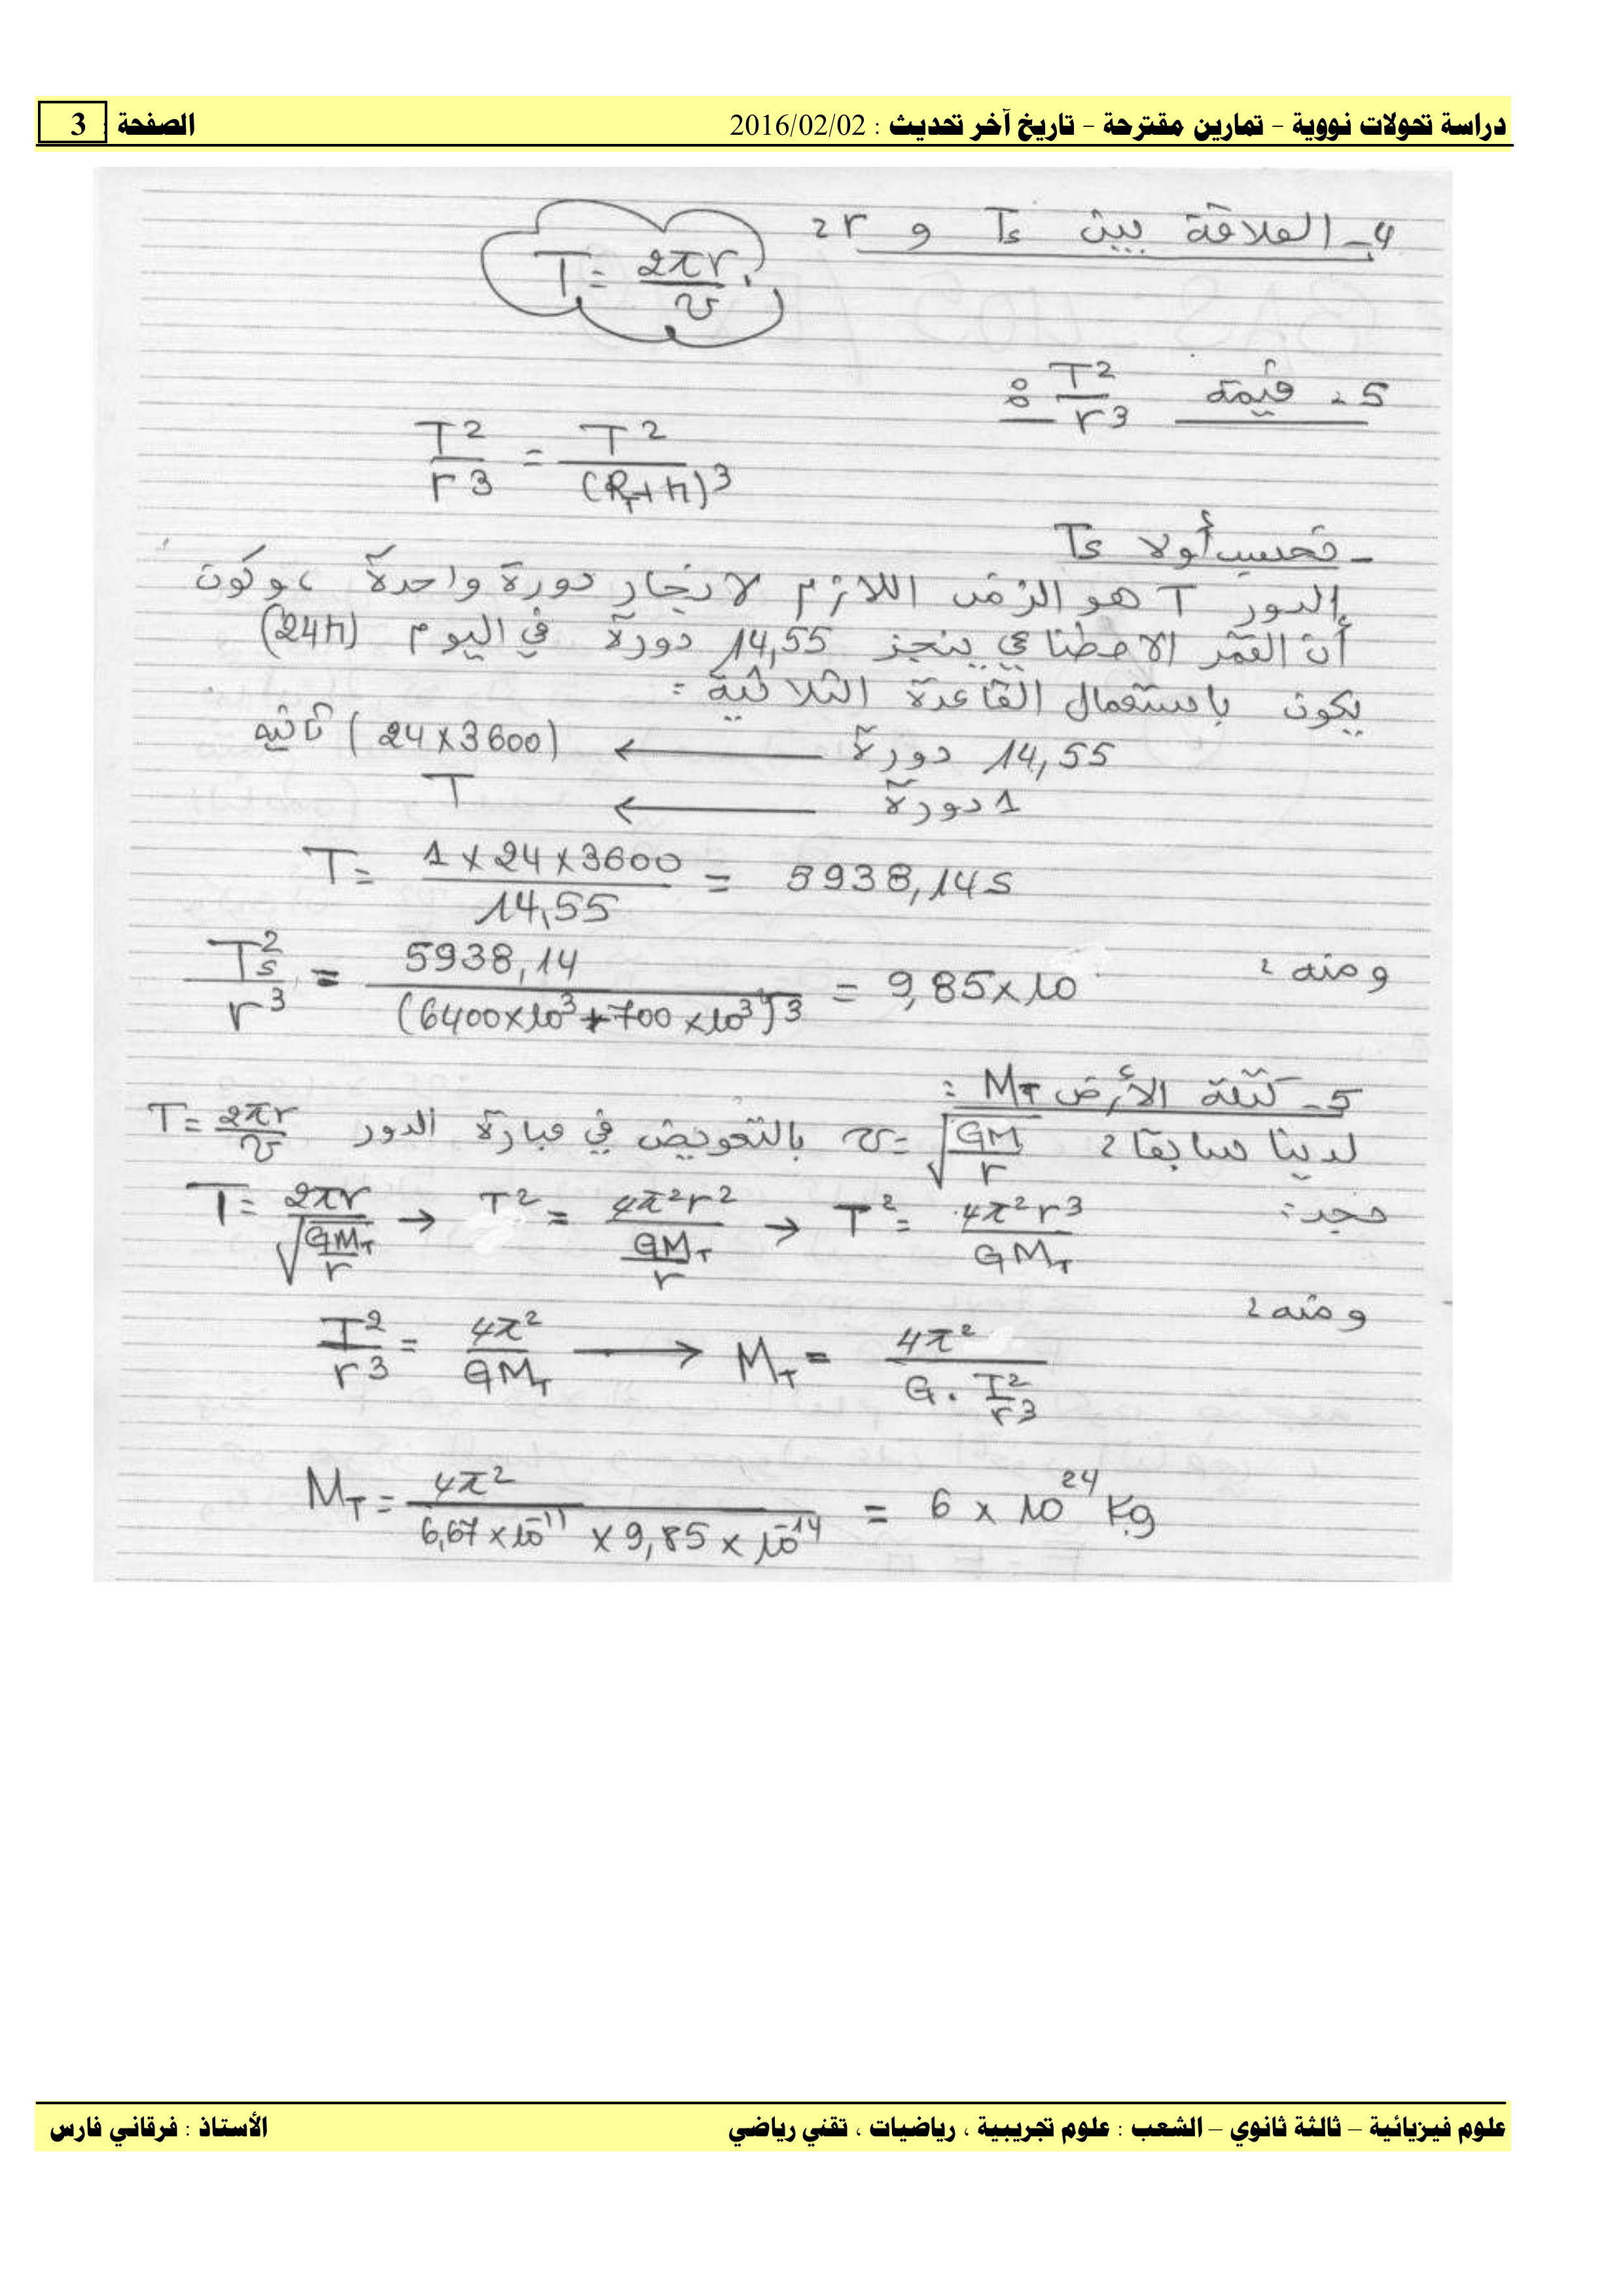 دراسة تحولات نووية – تمارين مقترحة – تاريخ آخر تحديث : 2016/02/02 الصفحة : 3
4- العلاقة بين Ts و r :
T = 2πr / v
5- قيمة T² / r³ :
T² / r³ = T² / (R_T + h)³
- نحسب أولا Ts
الدور T هو الزمن اللازم لانجاز دورة واحدة ، وكون
أن القمر الاصطناعي ينجز 14,55 دورة في اليوم (24h)
يكون باستعمال القاعدة الثلاثية :
14,55 دورة ← (24 x 3600) ثانية
1 دورة ← T
T = 1 x 24 x 3600 / 14,55 = 5938,14 s
ومنه : Ts² / r³ = 5938,14 / (6400 x 10³ + 700 x 10³)³ = 9,85 x 10
5- كتلة الأرض M_T :
لدينا سابقا : v = √(GM / r) بالتعويض في عبارة الدور T = 2πr / v
نجد : T = 2πr / √(GM_T / r) → T² = 4π²r² / (GM_T / r) → T² = 4π²r³ / GM_T
ومنه :
T² / r³ = 4π² / GM_T → M_T = 4π² / (G . T² / r³)
M_T = 4π² / (6,67 x 10⁻¹¹ x 9,85 x 10⁻¹⁴) = 6 x 10²⁴ Kg
علوم فيزيائية – ثالثة ثانوي – الشعب : علوم تجريبية ، رياضيات ، تقني رياضي الأستاذ : فرقاني فارس